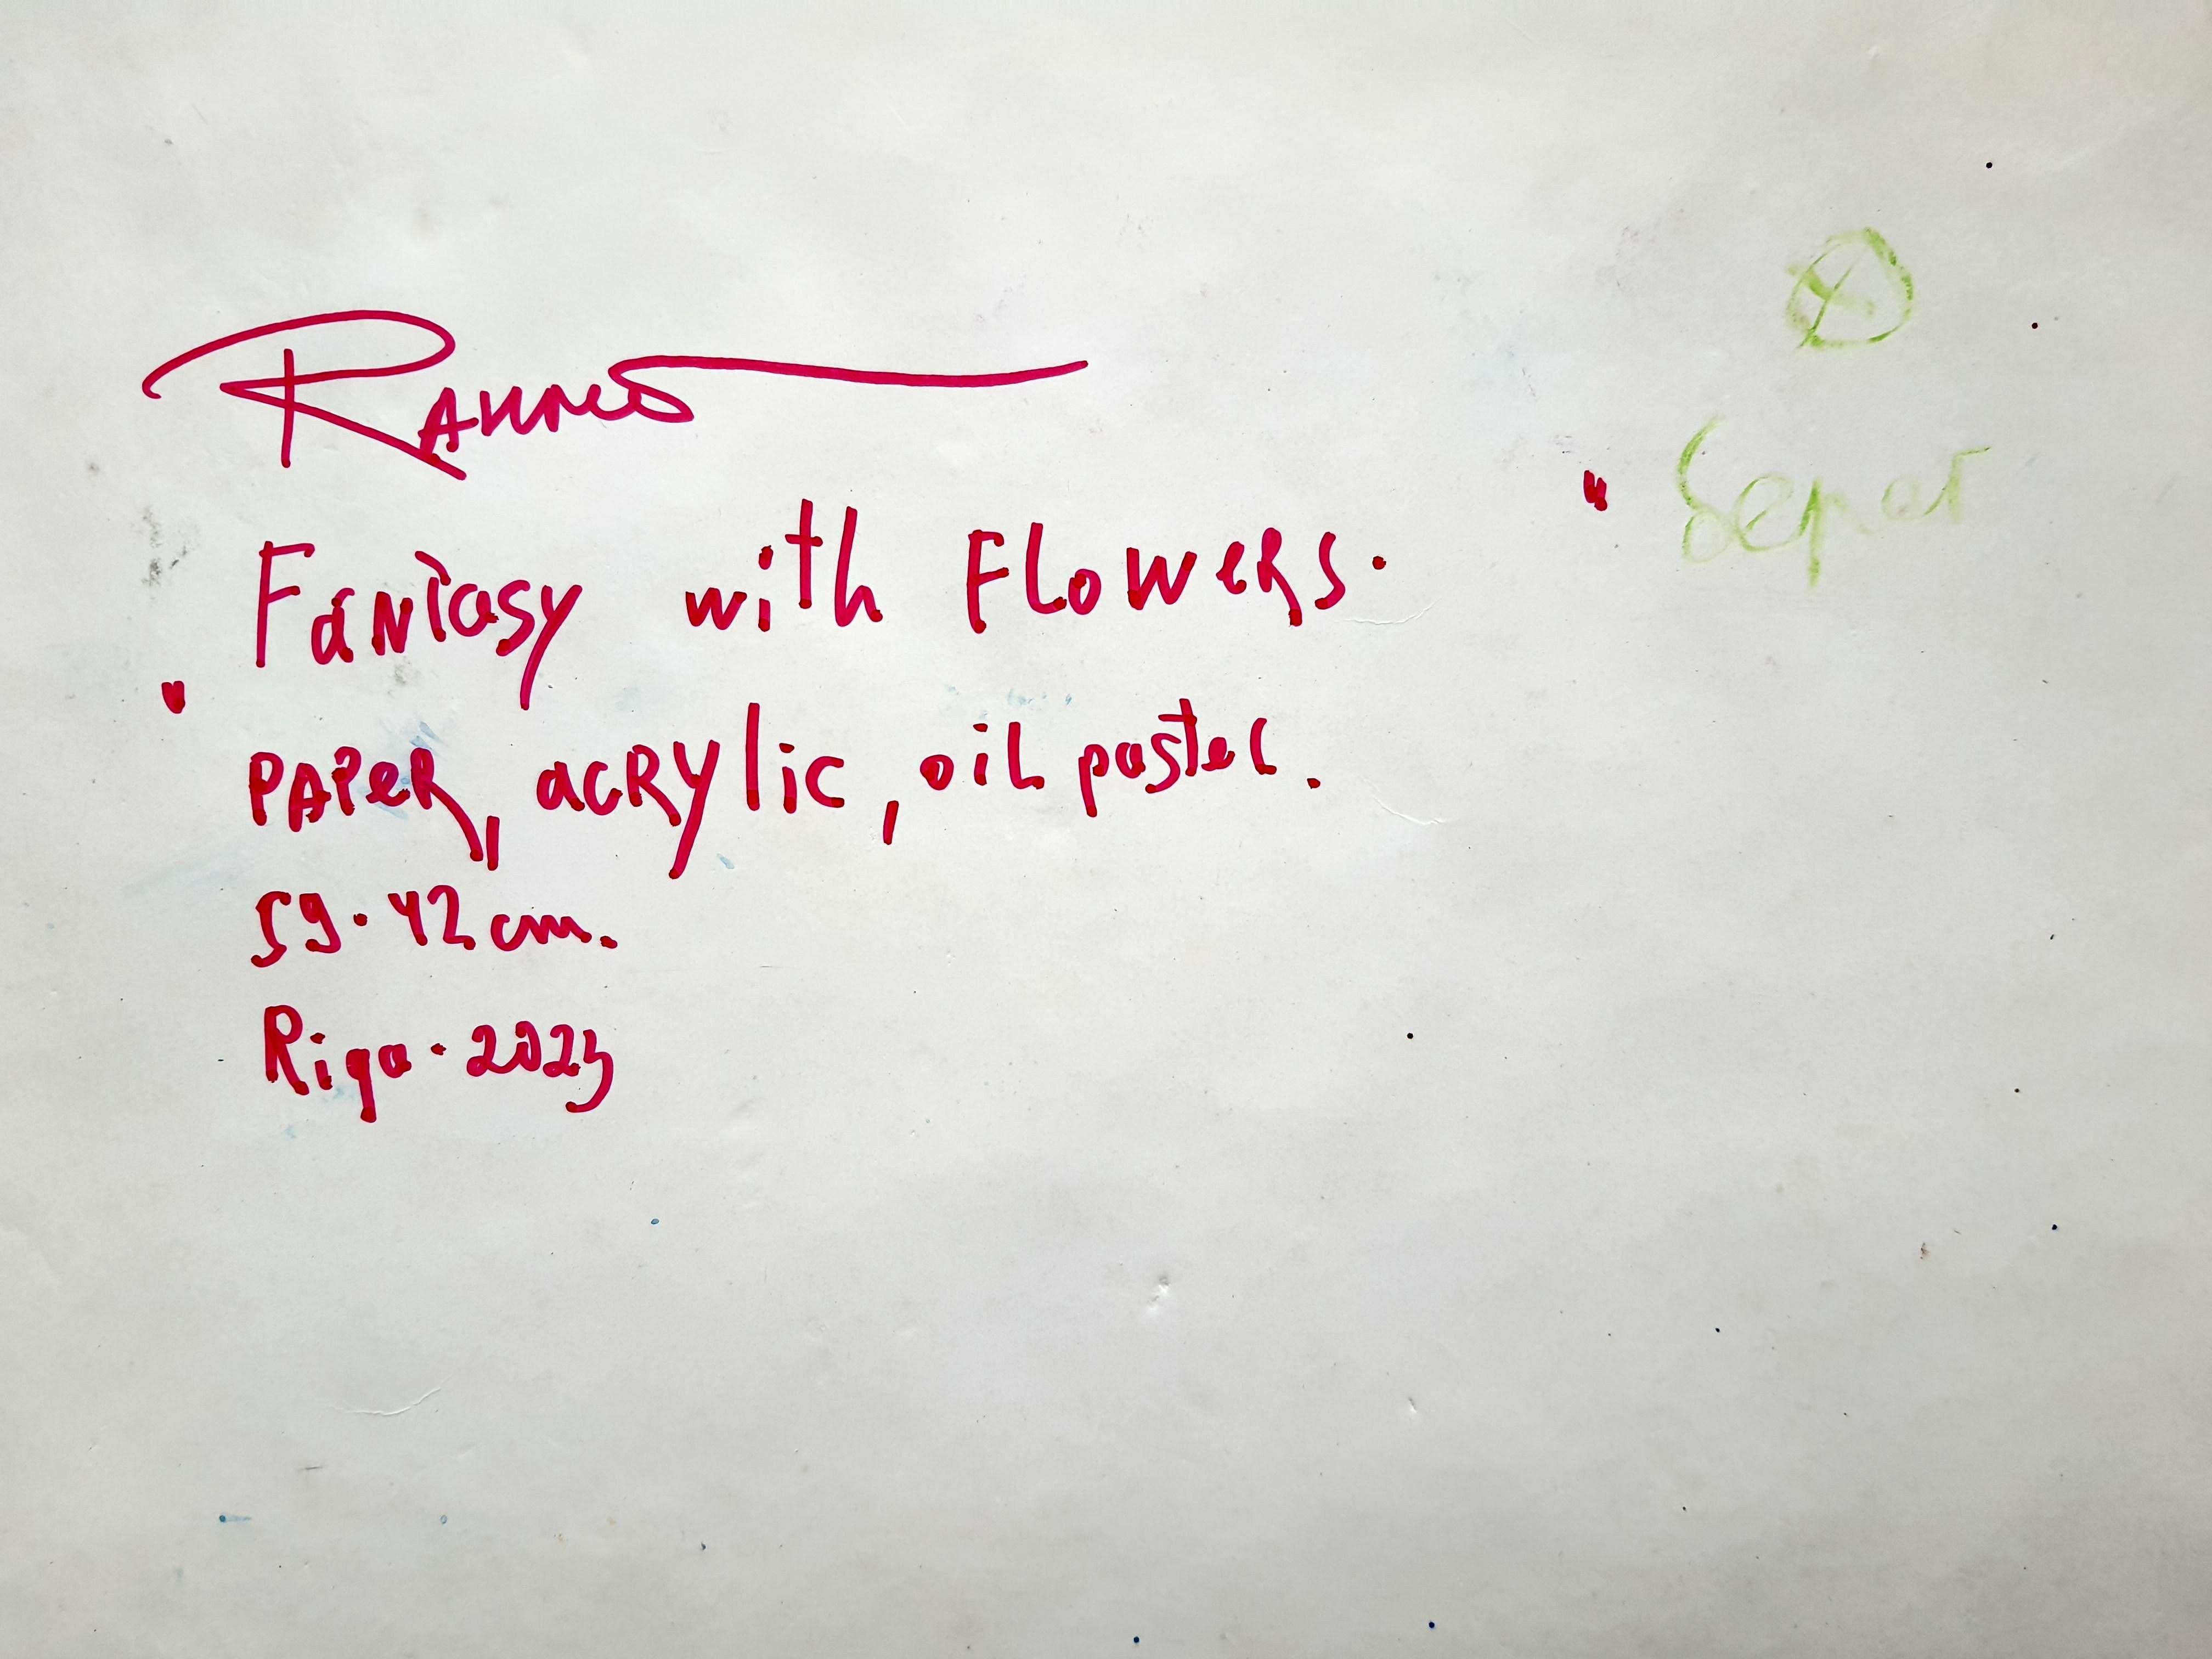 Fantasy with Flowers.
" "
PAPeR, acRylic, oil pastel.
59·42 cm.
Riga·2023